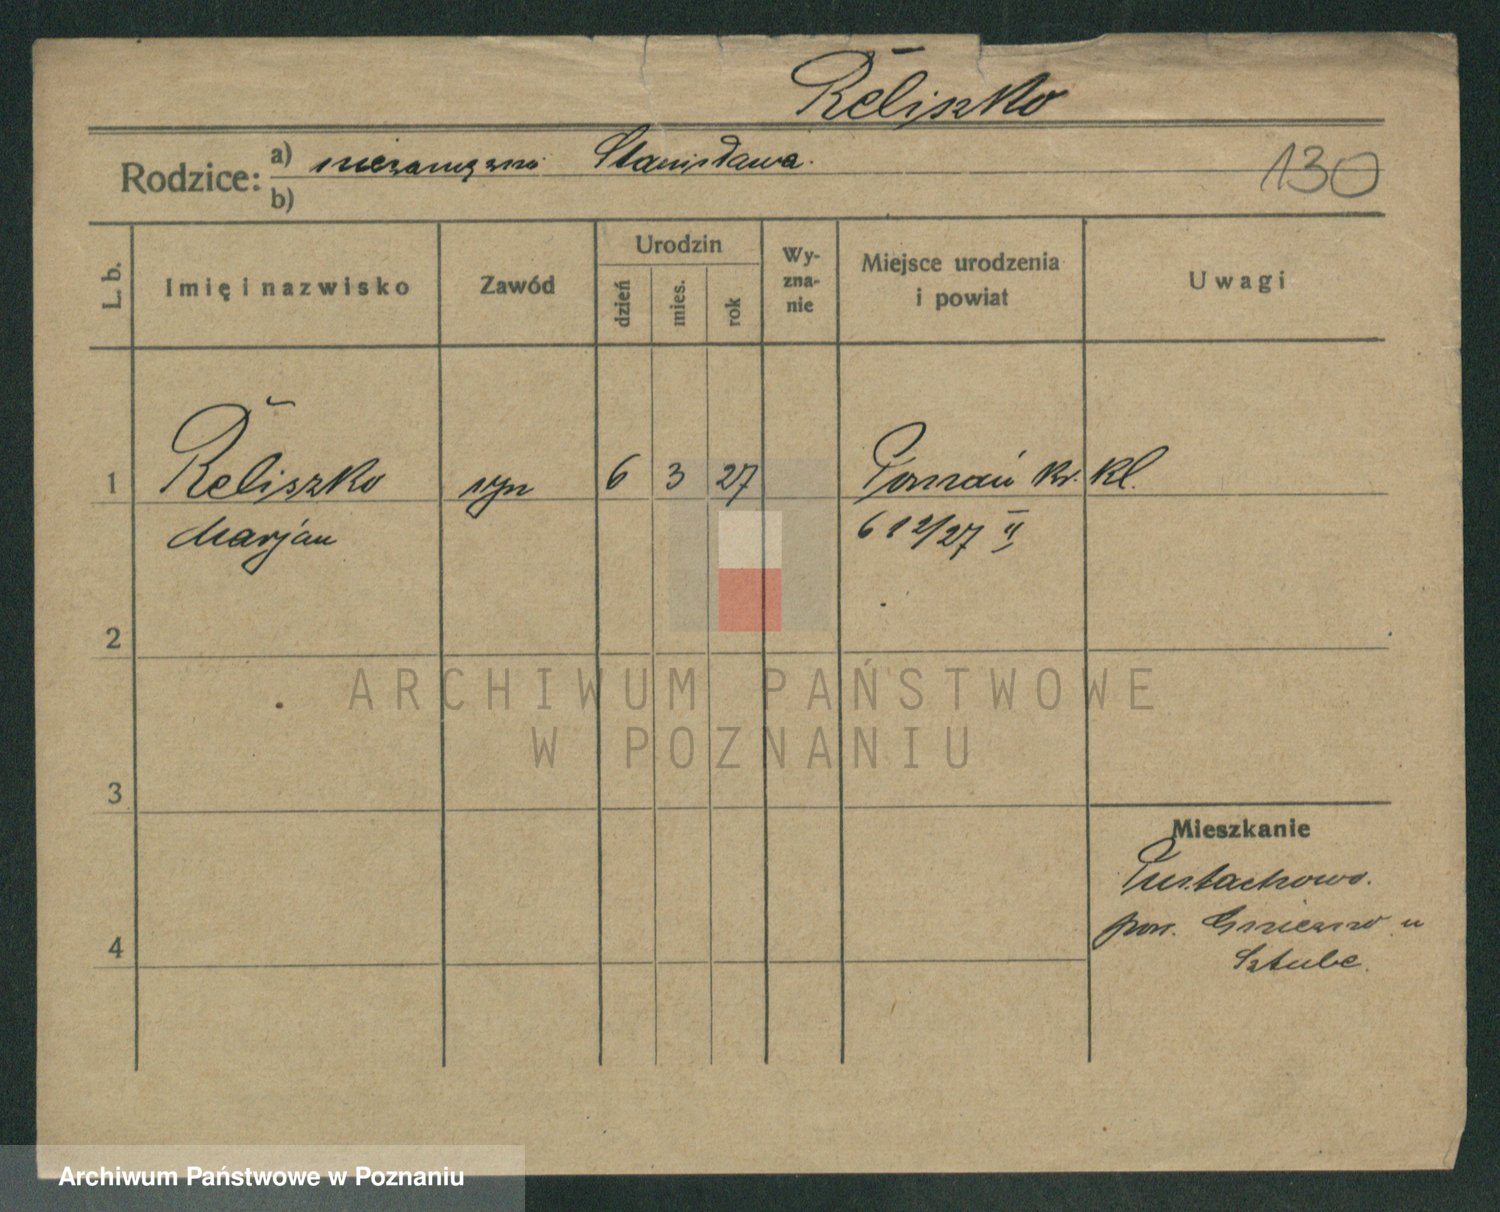 Reliszko
Rodzice: a) niezamężna Stanisława.
b)
130
L. b.
Imię i nazwisko
Zawód
Urodzin
dzień
mies.
rok
Wy-
zna-
nie
Miejsce urodzenia
i powiat
Uwagi
1 Reliszko syn 6 3 27 Poznań kr. kl.
Marjan 612/27 II
2
3
4
Mieszkanie
Pustachowo.
pow. Gniezno u
Sztube.
ARCHIWUM PAŃSTWOWE
W POZNANIU
Archiwum Państwowe w Poznaniu